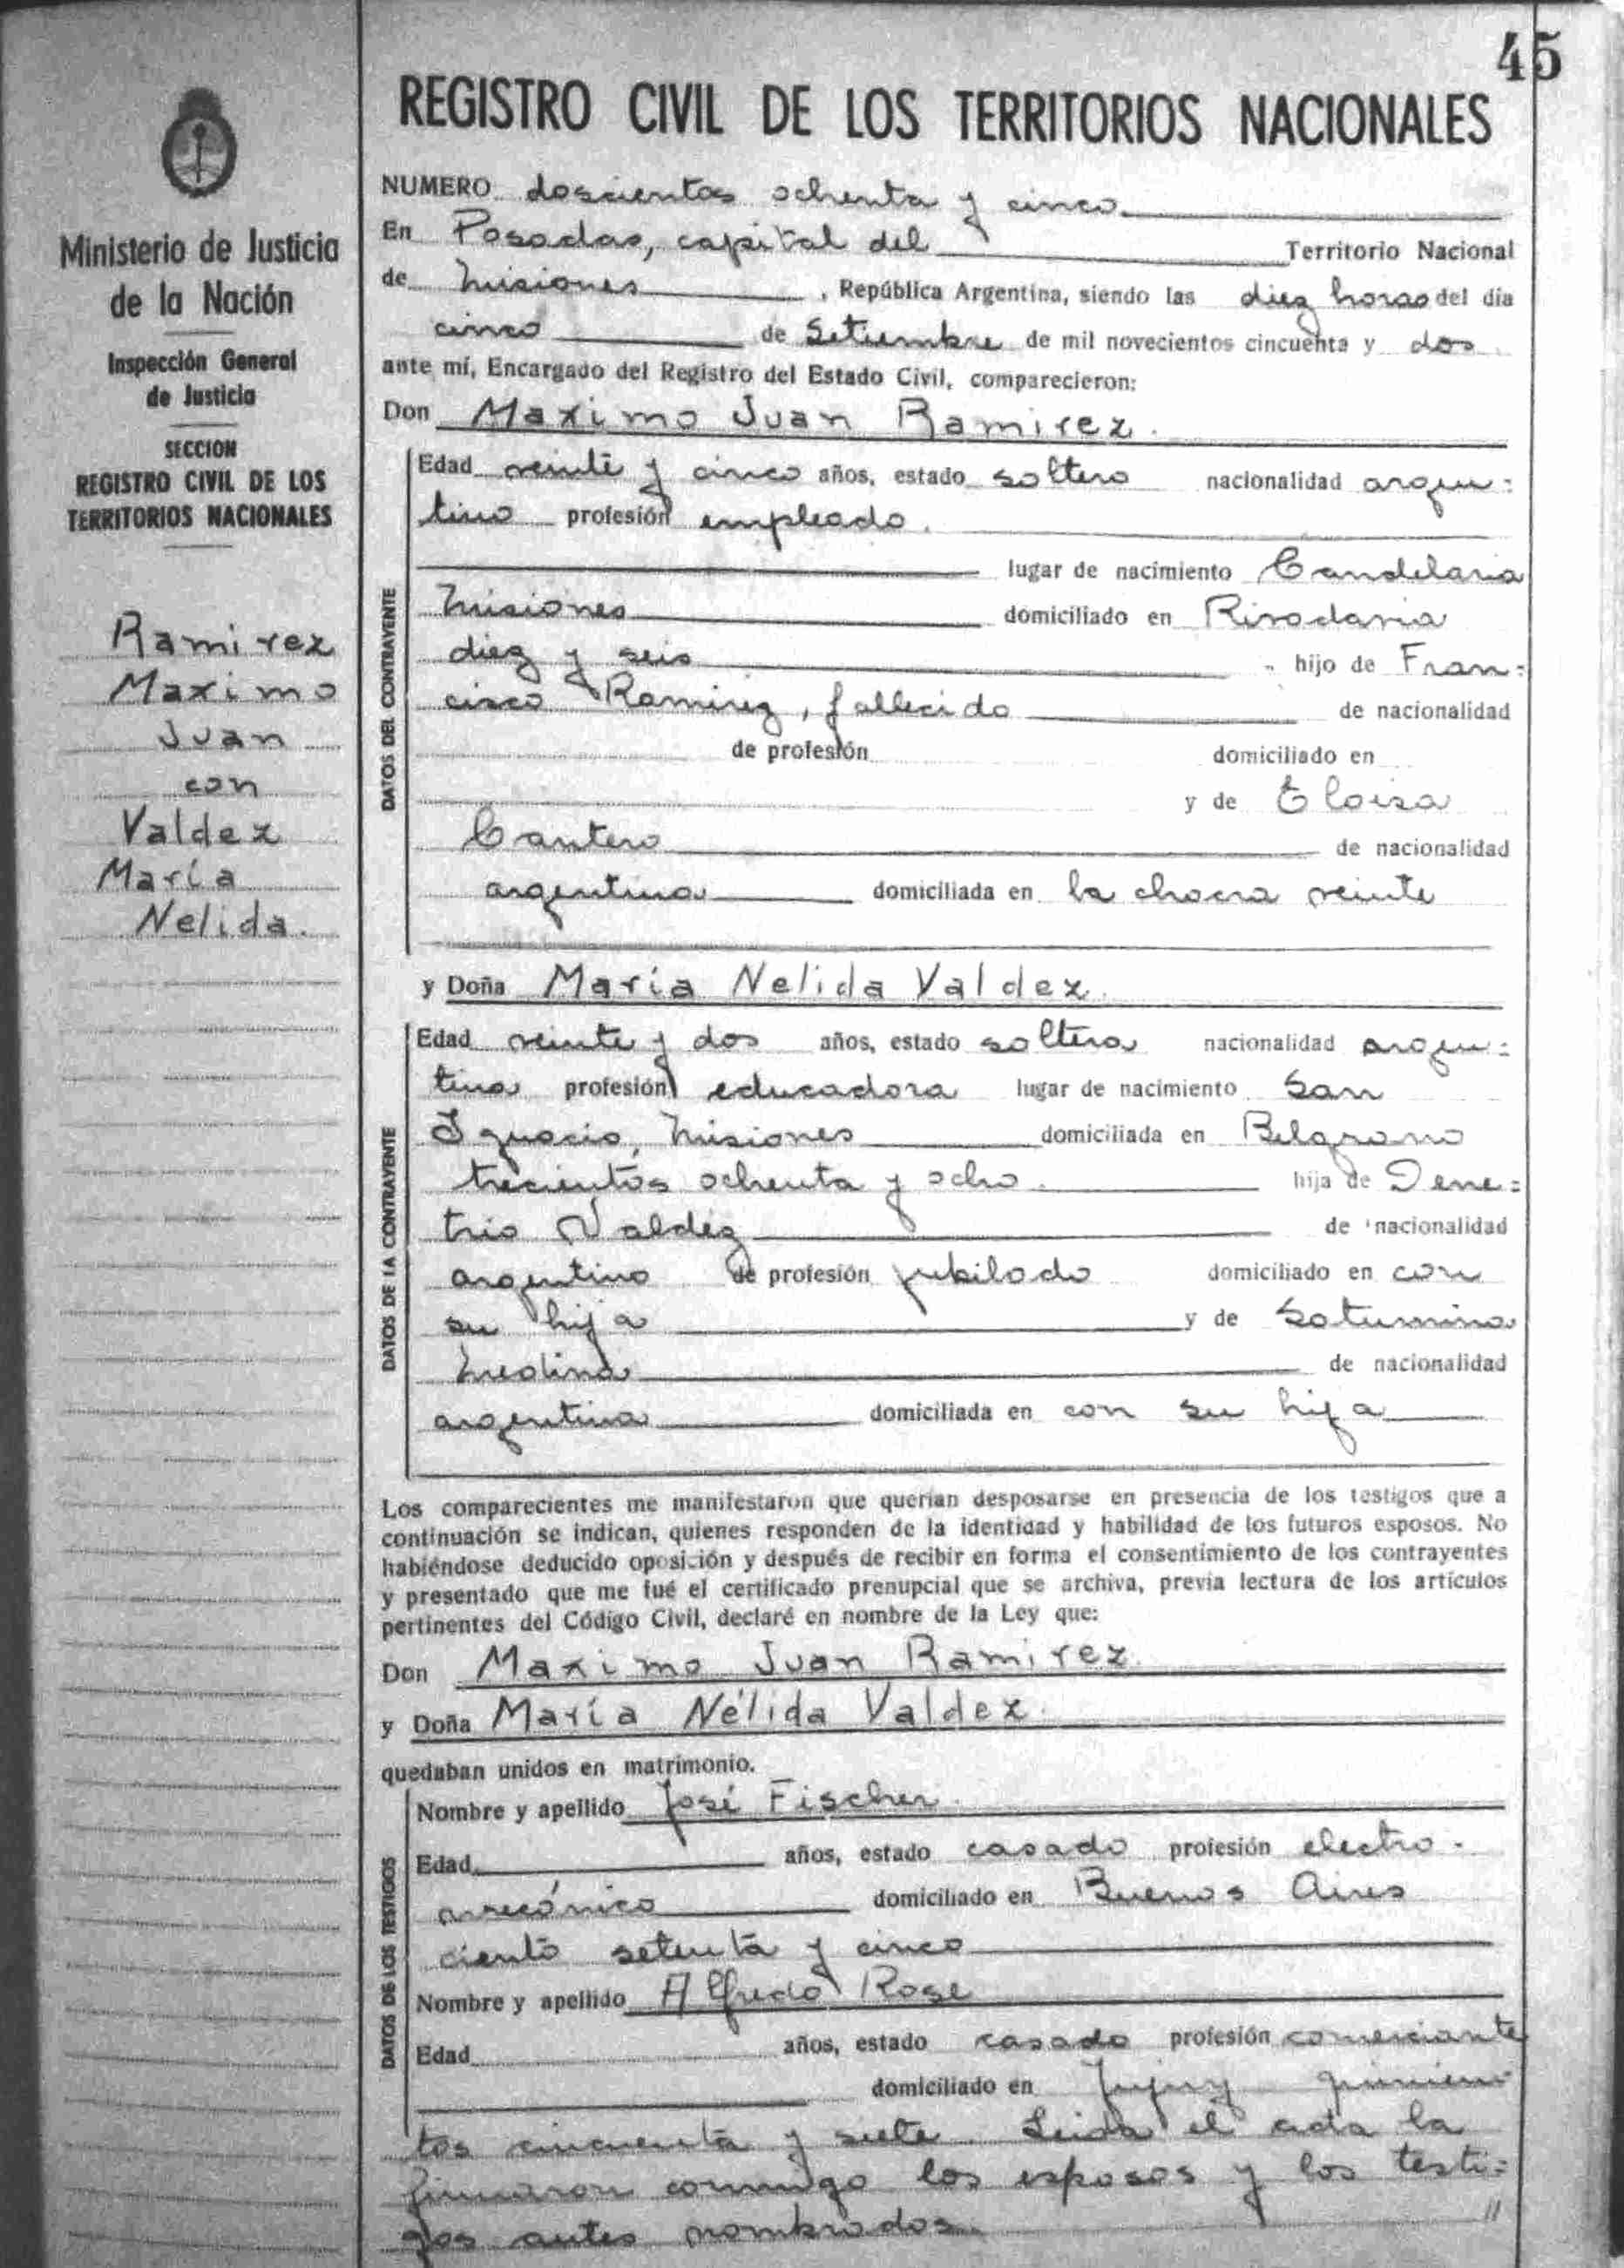 45
REGISTRO CIVIL DE LOS TERRITORIOS NACIONALES
Ministerio de Justicia
de la Nación
Inspección General
de Justicia
SECCION
REGISTRO CIVIL DE LOS
TERRITORIOS NACIONALES
Ramirez
Maximo
Juan
con
Valdez
María
Nelida.
NUMERO doscientos ochenta y cinco
En Posadas, capital del Territorio Nacional
de Misiones, República Argentina, siendo las diez horas del día
cinco de Setiembre de mil novecientos cincuenta y dos
ante mí, Encargado del Registro del Estado Civil, comparecieron:
Don Maximo Juan Ramirez.
DATOS DEL CONTRAYENTE
Edad veinte y cinco años, estado soltero nacionalidad argen=
tino profesión empleado.
lugar de nacimiento Candelaria
Misiones domiciliado en Rivadavia
diez y seis hijo de Fran=
cisco Ramirez, fallecido de nacionalidad
de profesión domiciliado en
y de Eloisa
Cantero de nacionalidad
argentina domiciliada en la chacra veinte
y Doña María Nelida Valdez.
DATOS DE LA CONTRAYENTE
Edad veinte y dos años, estado soltera nacionalidad argen=
tina profesión educadora lugar de nacimiento San
Ignacio, Misiones domiciliada en Belgrano
trecientos ochenta y ocho. hija de Deme=
trio Valdez de nacionalidad
argentino de profesión jubilado domiciliado en con
su hija y de Saturnina
Medina de nacionalidad
argentina domiciliada en con su hija
Los comparecientes me manifestaron que querían desposarse en presencia de los testigos que a
continuación se indican, quienes responden de la identidad y habilidad de los futuros esposos. No
habiéndose deducido oposición y después de recibir en forma el consentimiento de los contrayentes
y presentado que me fué el certificado prenupcial que se archiva, previa lectura de los artículos
pertinentes del Código Civil, declaré en nombre de la Ley que:
Don Maximo Juan Ramirez
y Doña María Nélida Valdez.
quedaban unidos en matrimonio.
DATOS DE LOS TESTIGOS
Nombre y apellido José Fischer.
Edad años, estado casado profesión electro-
mecánico domiciliado en Buenos Aires
ciento setenta y cinco
Nombre y apellido Alfredo Rose
Edad años, estado casado profesión comerciante
domiciliado en Jujuy quinien
tos cincuenta y siete. Leida el acta la
firmaron conmigo los esposos y los testi=
gos antes nombrados. //